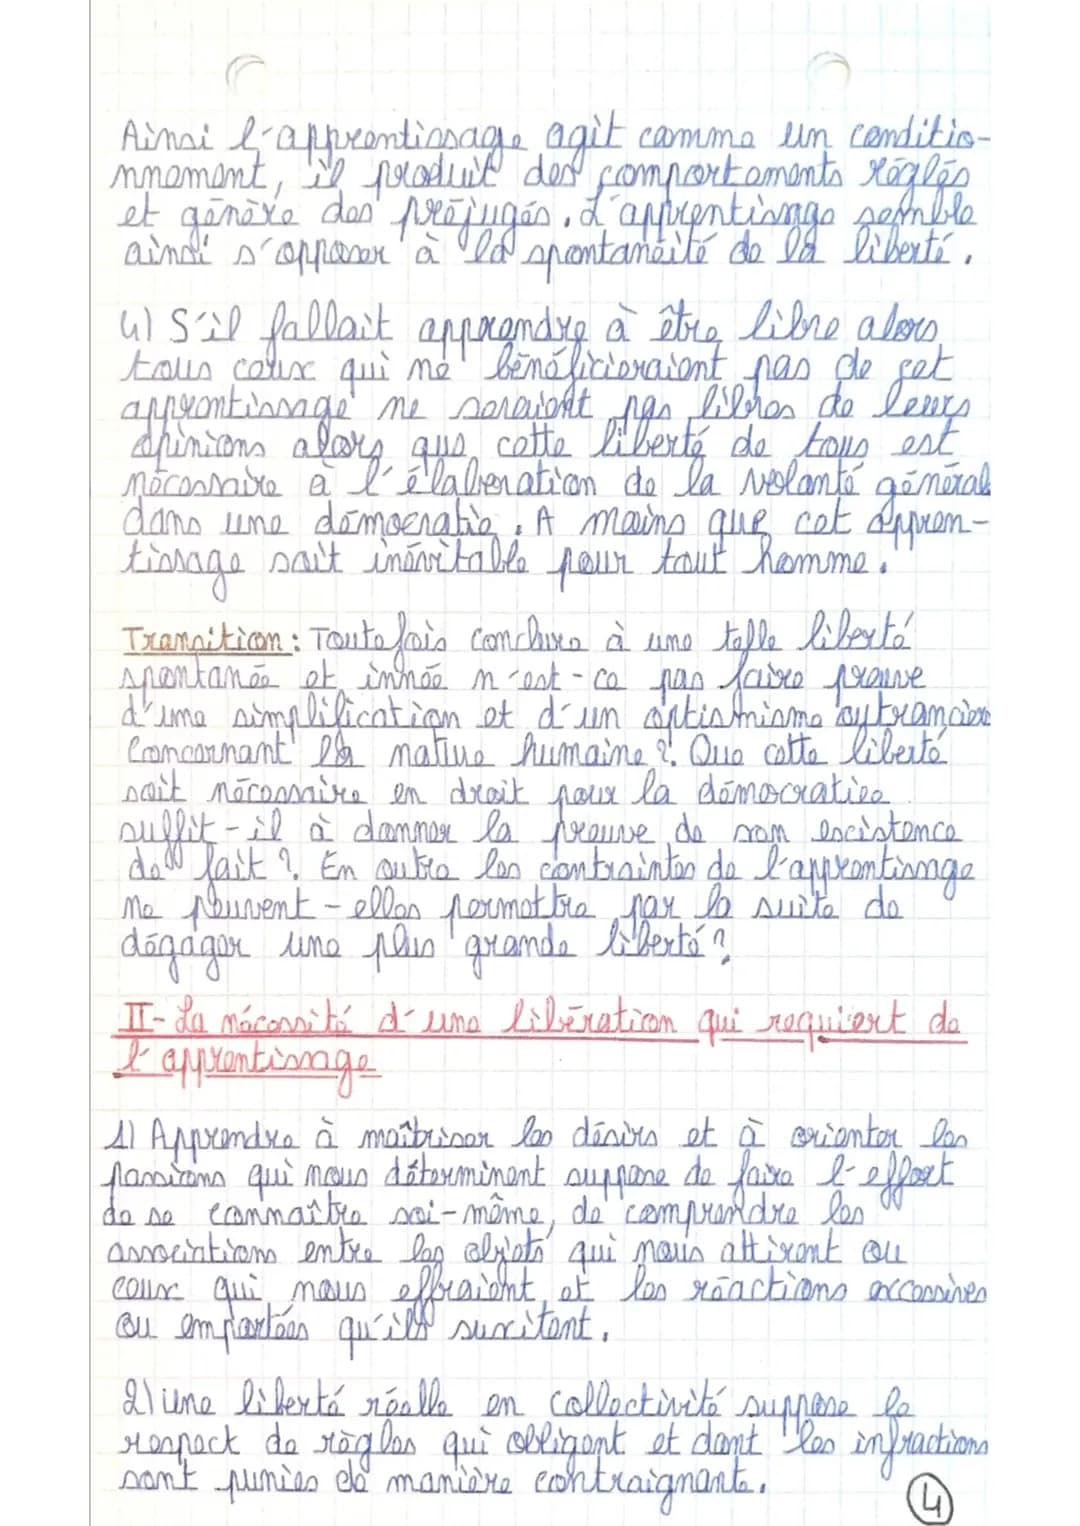 Ainsi l'apprentissage agit comme un conditio-
nnement, il produit des comportements réglés
et génère des préjugés. L'apprentissage semble
ainsi s'opposer à la spontanéité de la liberté.
4) S'il fallait apprendre à être libre alors
tous ceux qui ne bénéficieraient pas de cet
apprentissage ne seraient pas libres de leurs
opinions alors que cette liberté de tous est
nécessaire à l'élaboration de la volonté général
dans une démocratie. A moins que cet appren-
tissage soit inévitable pour tout homme.
Transition : Toutefois conclure à une telle liberté
spontanée et innée n'est-ce pas faire preuve
d'une simplification et d'un optismisme outrancier
concernant la nature humaine ? Que cette liberté
soit nécessaire en droit pour la démocratie
suffit-il à donner la preuve de son existence
de fait ? En outre les contraintes de l'apprentissage
ne peuvent-elles permettre par la suite de
dégager une plus grande liberté ?
II- La nécessité d'une libération qui requiert de
l'apprentissage
1) Apprendre à maîtriser les désirs et à orienter les
passions qui nous déterminent suppose de faire l'effort
de se connaître soi-même, de comprendre les
associations entre les objets qui nous attirent ou
ceux qui nous effraient et les réactions excessives
ou emportées qu'ils suscitent.
2) une liberté réelle en collectivité suppose le
respect de règles qui obligent et dont les infractions
sont punies de manière contraignante.
4